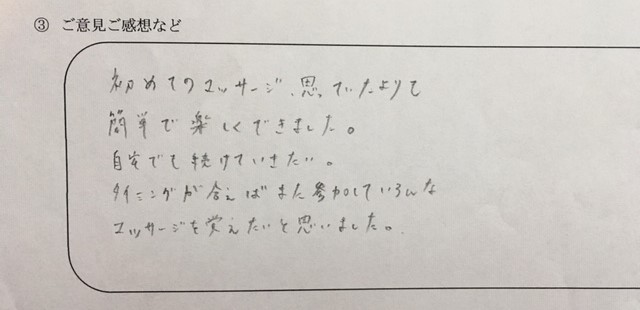 ③ ご意見ご感想など
初めてのコッサージ、思っていたよりて
簡単で楽しくできました。
自宅でも続けていきたい。
タイミングが合えばまた参加していろんな
コッサージを覚えたいと思いました。